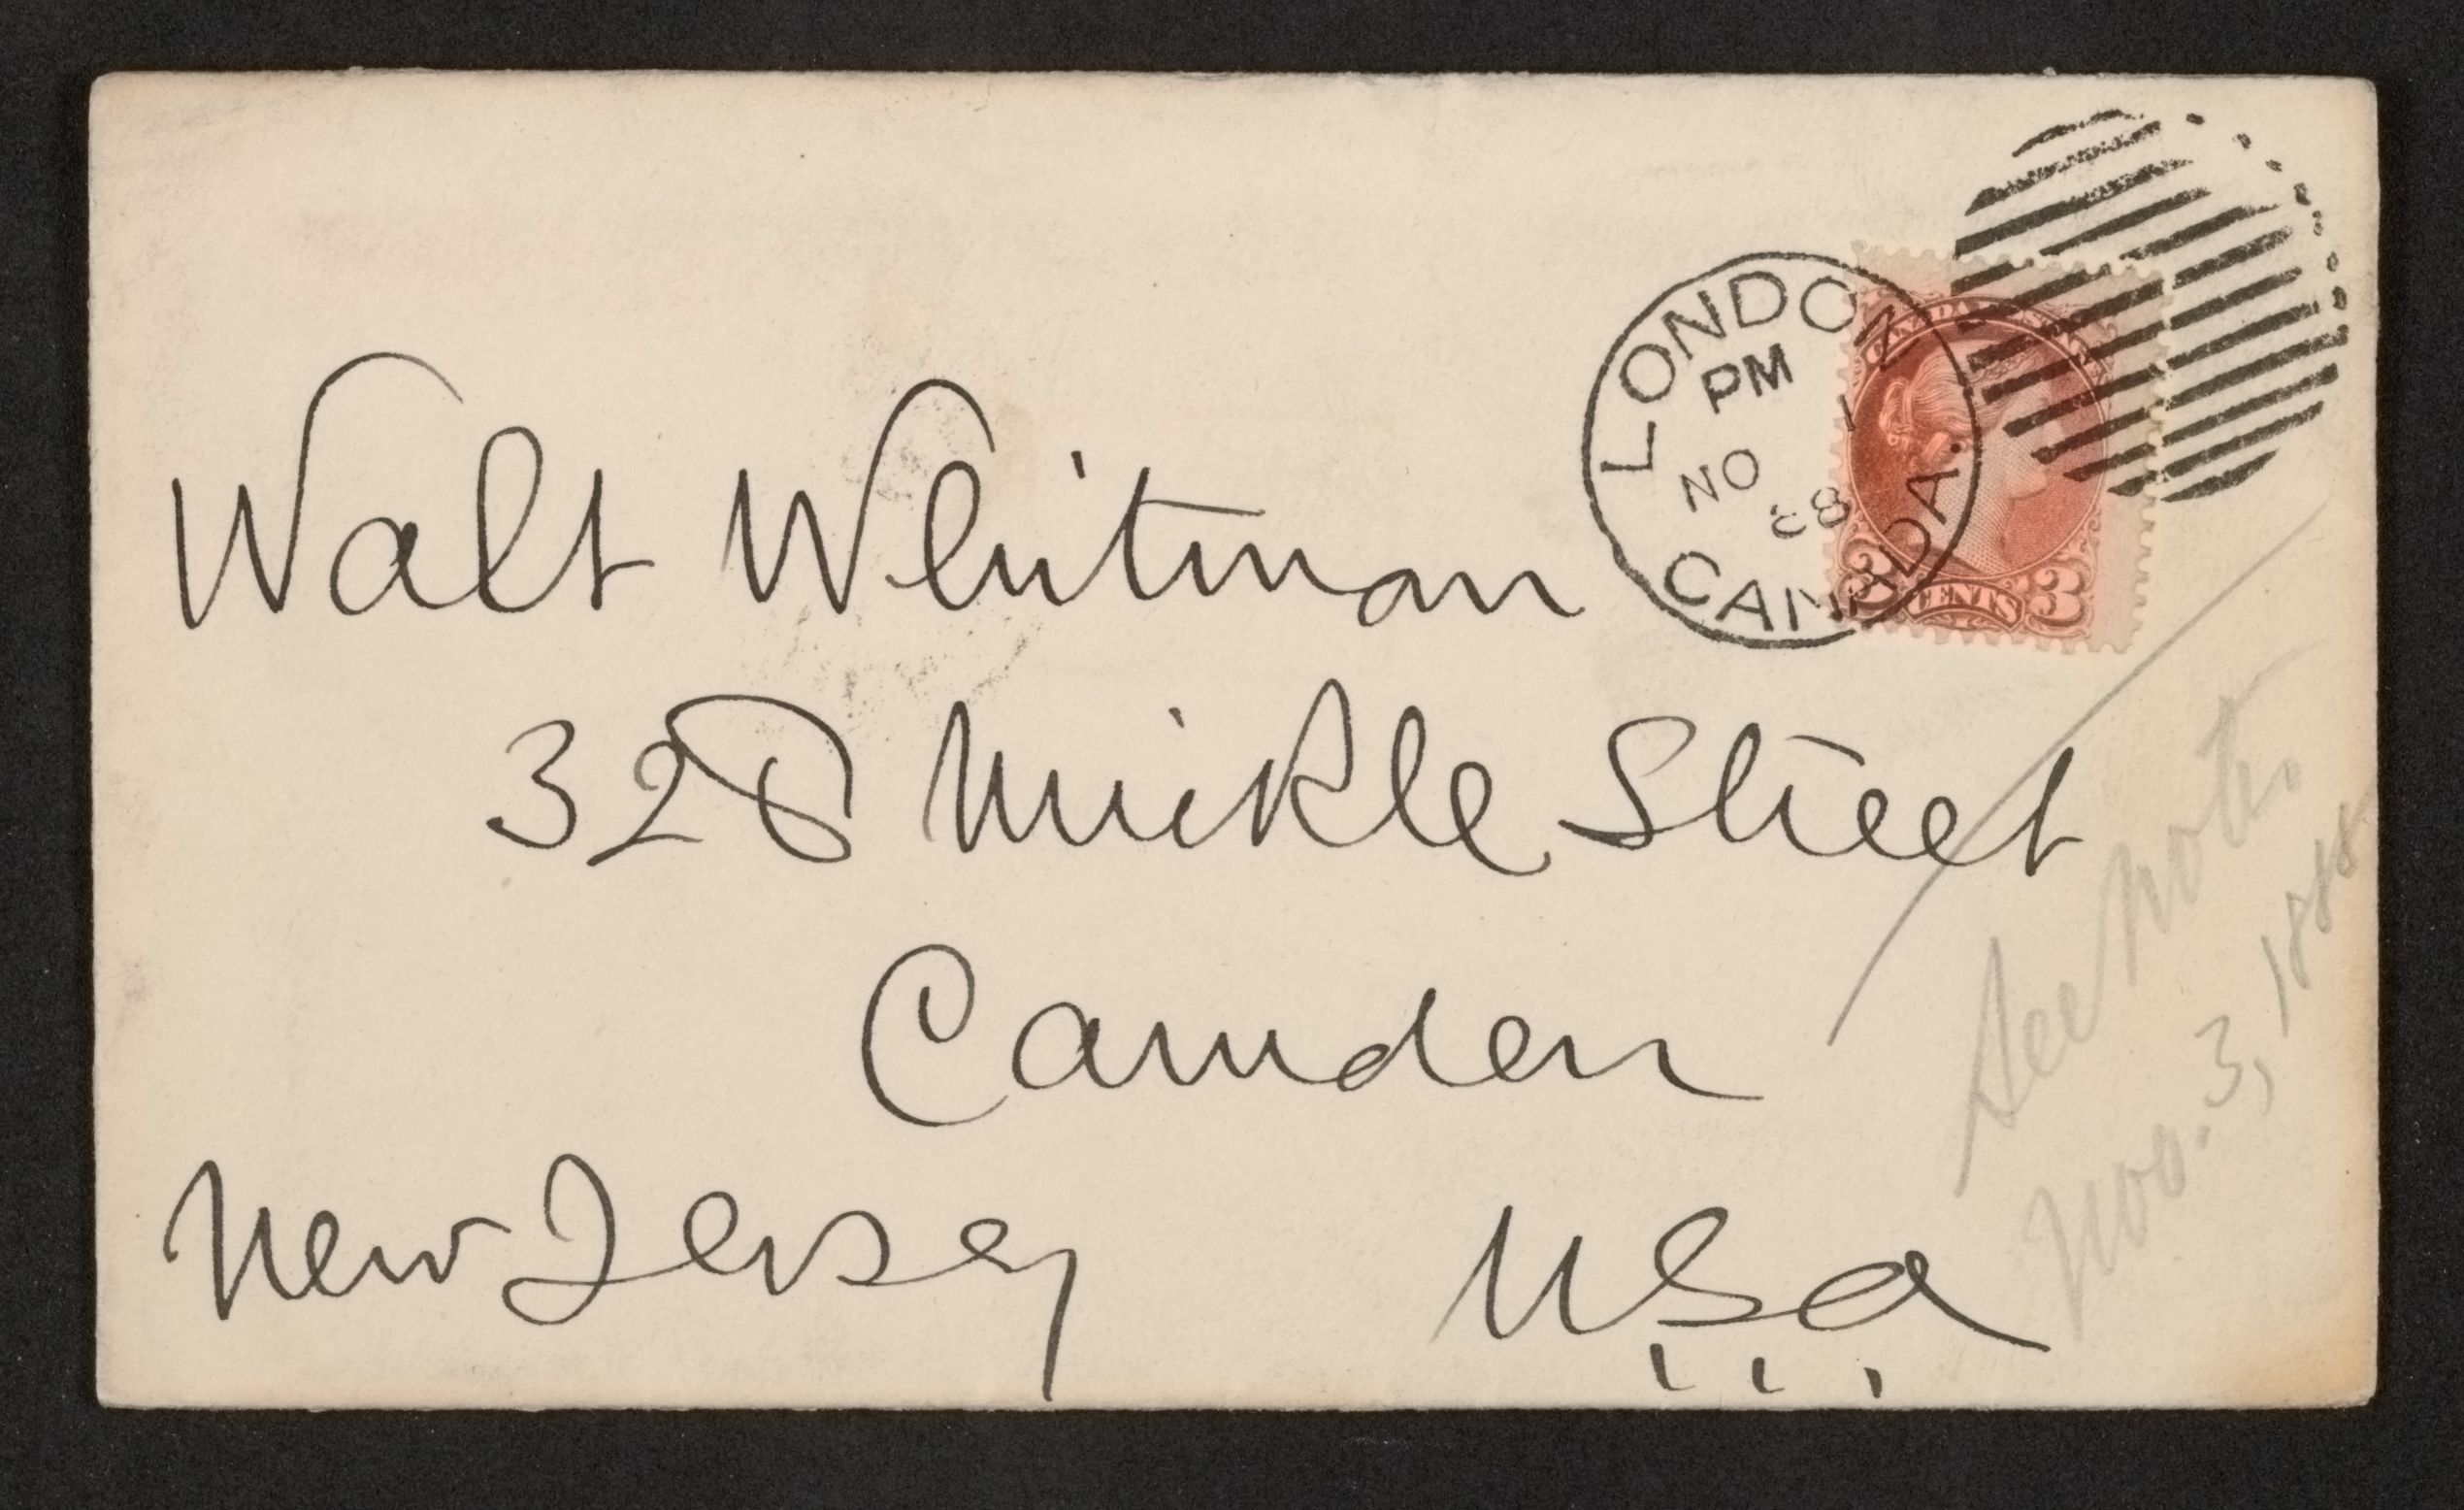 LONDON
PM
1
NO
88
CANADA.
CANADA POSTAGE
3 CENTS 3
Walt Whitman
328 Mickle Street
Camden
New Jersey
U.S.a.
See note
Nov. 3, 1888